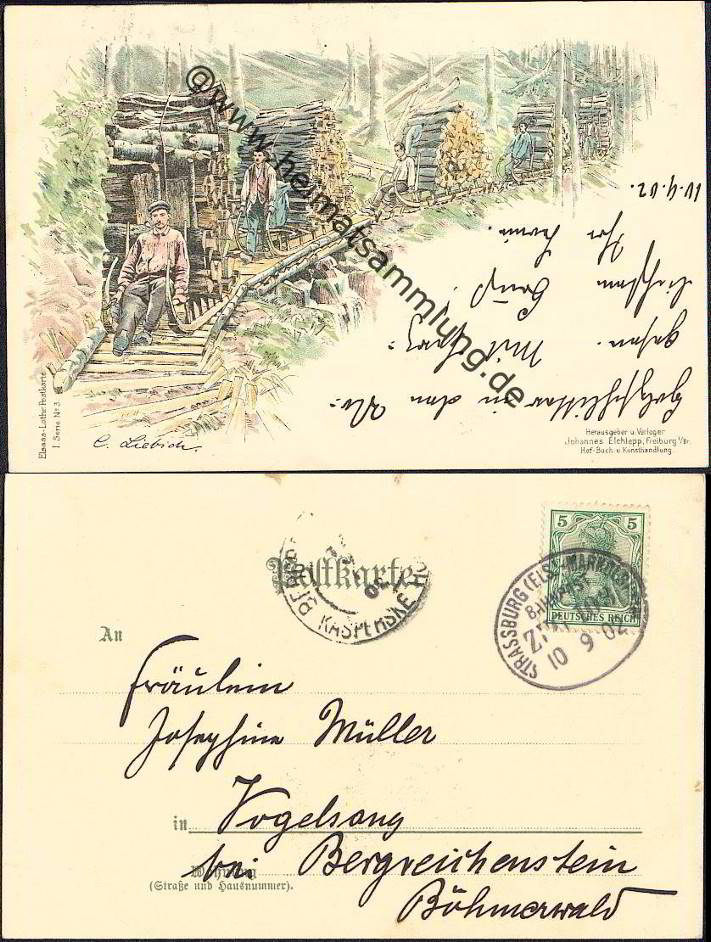 ©www.heimatsammlung.de
10.9.02.
Ihr
lieben
Gruß!
gesen. Mit
Holzschlitter in den Vo-
Elsass-Lothr. Postkarte
I. Serie No 3
C. Liebich.
Herausgeber u. Verleger
Johannes Elchlepp, Freiburg i/Br.
Hof-Buch. u. Kunsthandlung.
Postkarte
BERGR
KAŠPERSKE H
5 5
DEUTSCHES REICH
STRASSBURG (ELS)-MARKOLSHEIM
BAHNPOST
ZUG
10 9 02
An
Fräulein
Josephine Müller
in Vogelsang
Wohnung
bei Bergreichenstein
(Straße und Hausnummer).
Böhmerwald